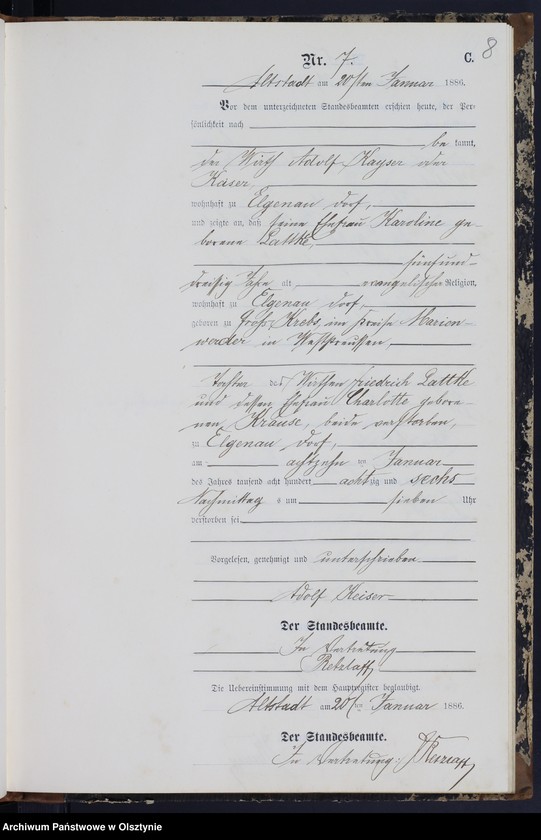 8
Nr. 7. C.
Altstadt am 20sten Januar 1886.
Vor dem unterzeichneten Standesbeamten erschien heute, der Per-
sönlichkeit nach
be kannt,
der Wirth Adolf Kayser oder
Käser,
wohnhaft zu Elgenau Dorf,
und zeigte an, daß seine Ehefrau Karoline ge-
borene Lattke,
fünfund-
dreißig Jahre alt, evangelischer Religion,
wohnhaft zu Elgenau Dorf,
geboren zu Groß Krebs, im Kreise Marien-
werder in Westpreussen,
Tochter des Wirthen Friedrich Lattke
und dessen Ehefrau Charlotte gebore-
nen Krause, beide verstorben,
zu Elgenau Dorf,
am achtzehn ten Januar
des Jahres tausend acht hundert achtzig und sechs
Nachmittag s um sieben Uhr
verstorben sei.
Vorgelesen, genehmigt und unterschrieben
Adolf Keiser
Der Standesbeamte.
In Vertretung
Retzlaff
Die Uebereinstimmung mit dem Hauptregister beglaubigt.
Altstadt am 20 ten Januar 1886.
Der Standesbeamte.
In Vertretung: Retzlaff
Archiwum Państwowe w Olsztynie